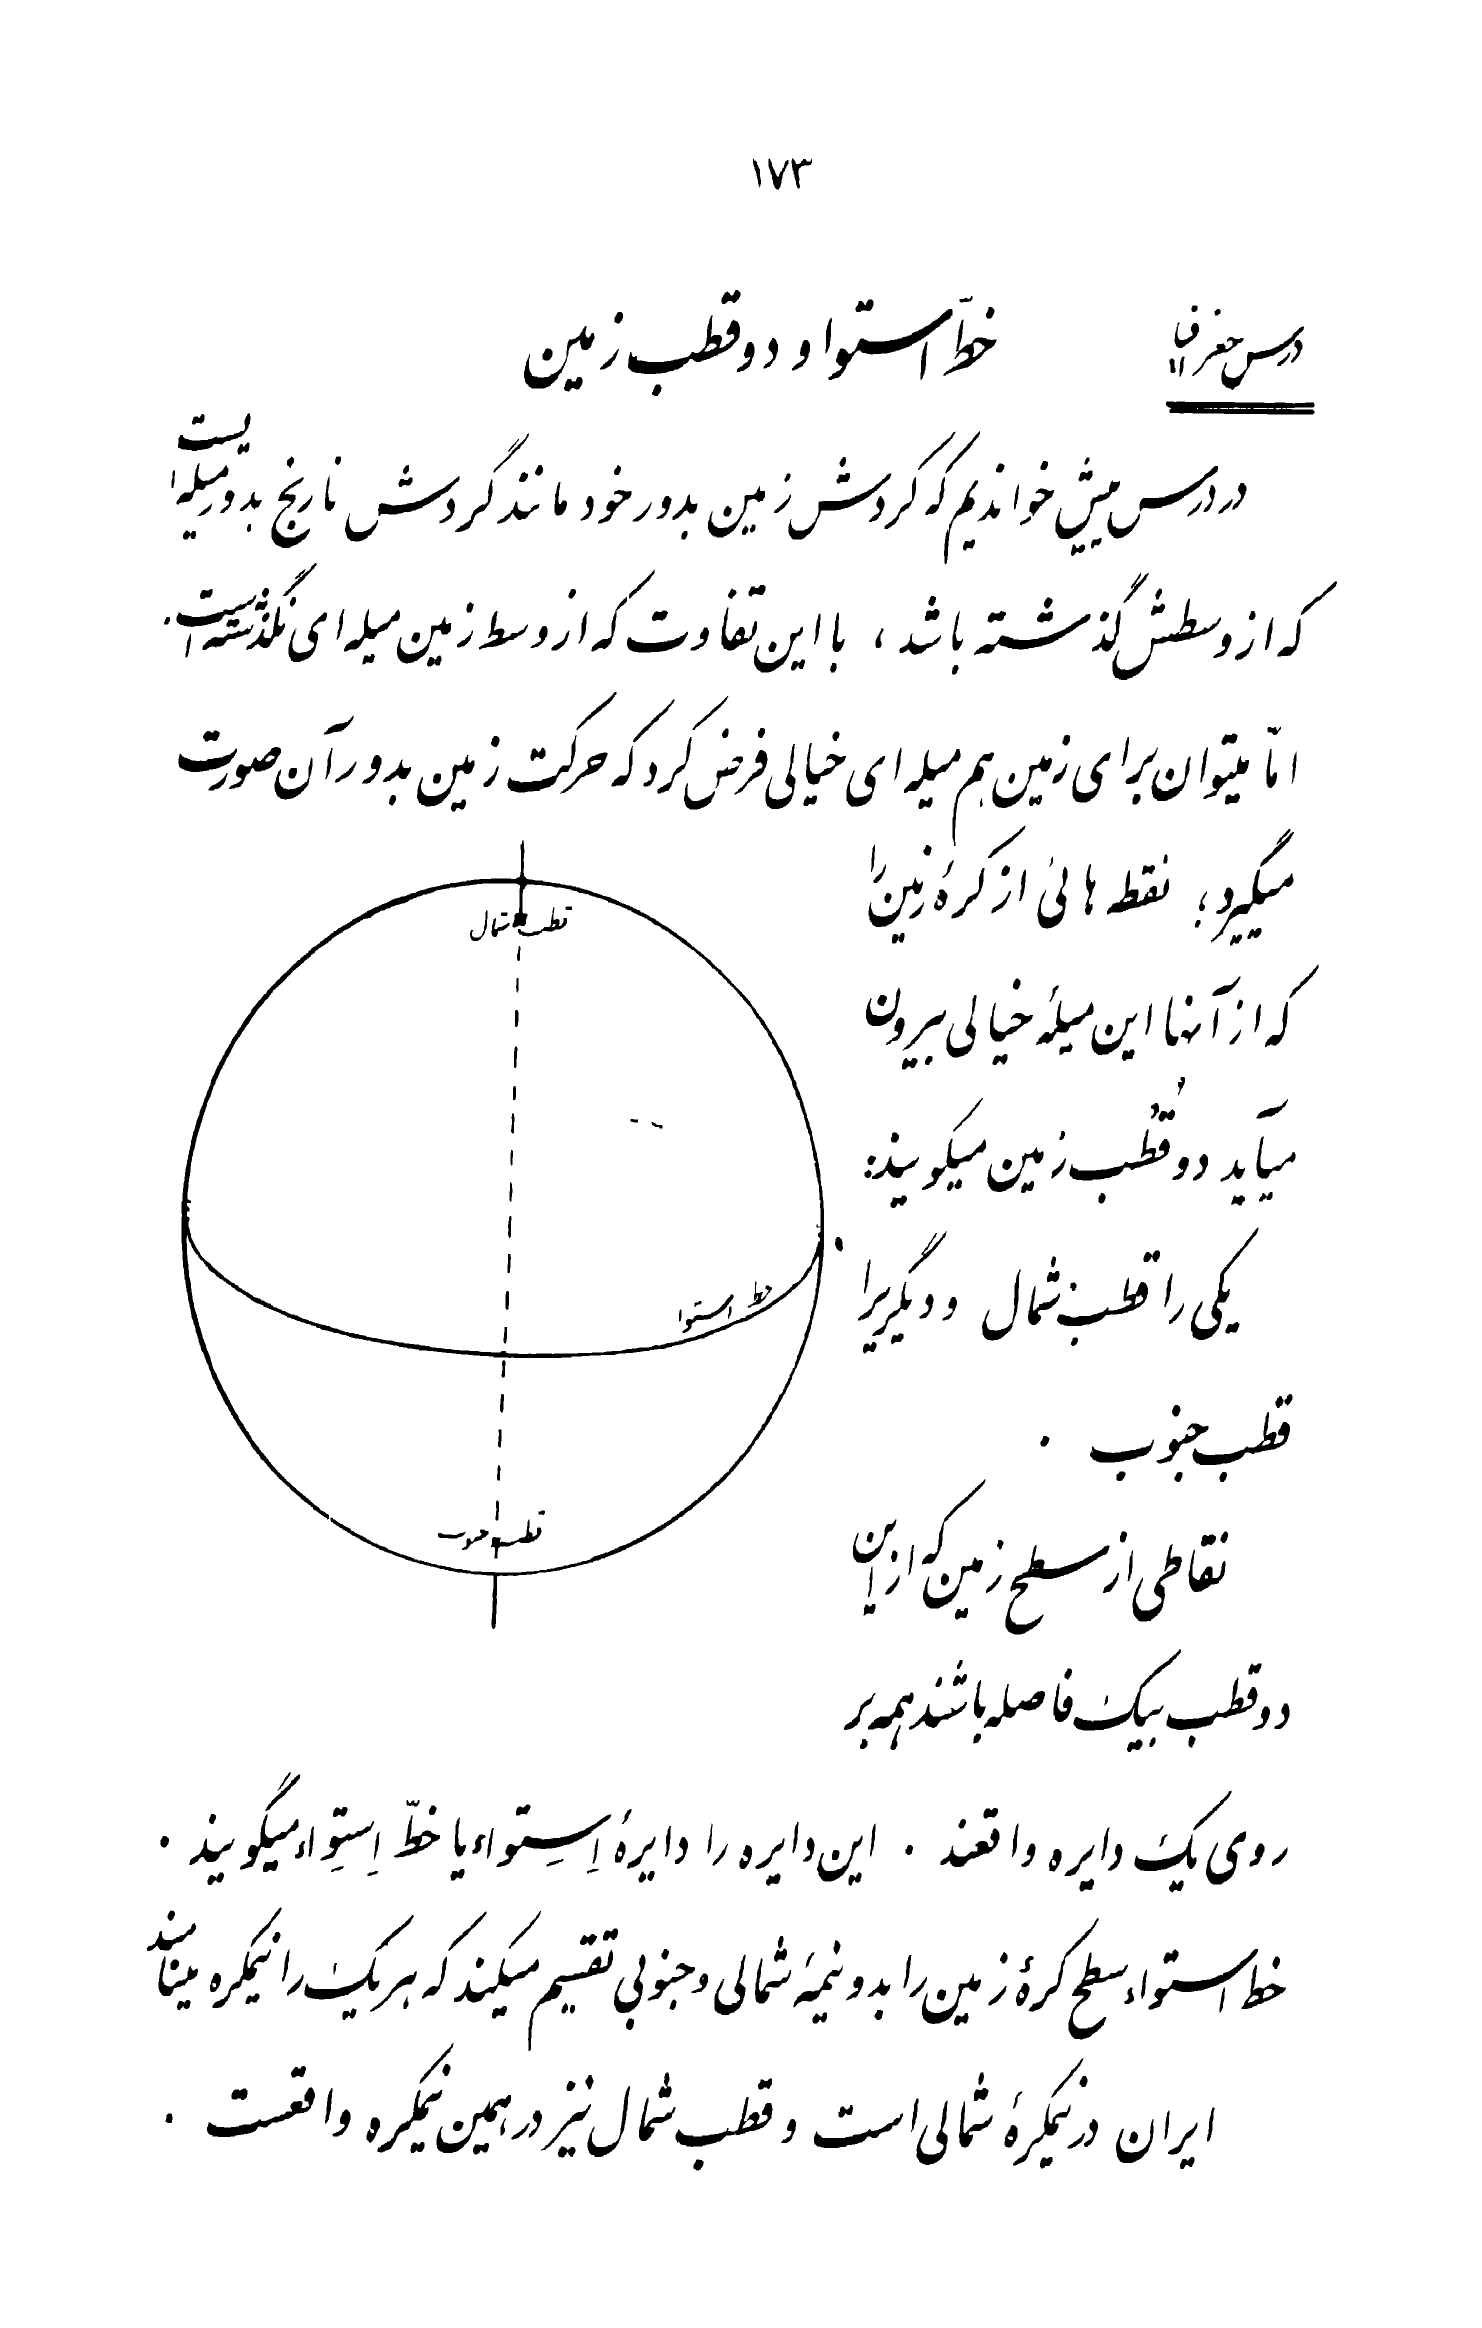 ۱۷۳
درس جغرافیا
خطّ استوا و دو قطب زمین
در درس پیش خواندیم که گردش زمین بدور خود مانند گردش نارنج بدور میله ایست
که از وسطش گذشته باشد ، با این تفاوت که از وسط زمین میله ای نگذشته است .
امّا میتوان برای زمین هم میله ای خیالی فرض کرد که حرکت زمین بدور آن صورت
میگیرد ؛ نقطه هائی از کرهٔ زمین را
که از آنها این میلهٔ خیالی بیرون
میآید دو قُطب زمین میگویند :
یکی را قطب شمال و دیگریرا
قطب جنوب .
نقاطی از سطح زمین که از این
دو قطب بیک فاصله باشند همه بر
روی یک دایره واقعند . این دایره را دایرهٔ اِستِواء یا خطّ اِستِواء میگویند .
خط استواء سطح کرهٔ زمین را بدو نیمهٔ شمالی و جنوبی تقسیم میکند که هر یک را نیمکره مینامند
ایران در نیمکرهٔ شمالی است و قطب شمال نیز در همین نیمکره واقعست .
قطب شمال
خط استوا
قطب جنوب